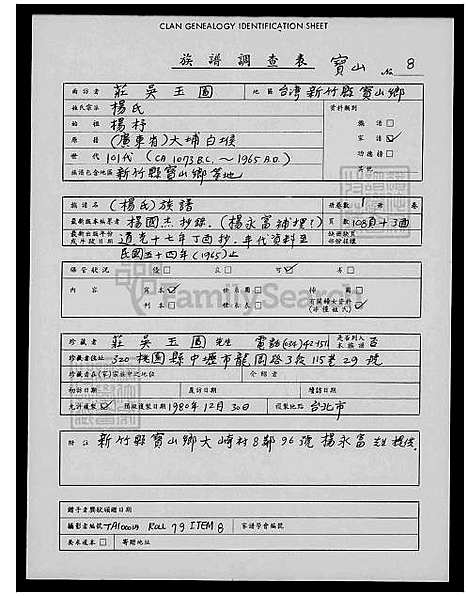 CLAN GENEALOGY IDENTIFICATION SHEET
族譜調查表 寶山 No. 8
面訪者 莊吳玉圖 地區 台灣新竹縣寶山鄉
姓氏宗派 楊氏 資料類別
始祖 楊杼 族譜
原籍 (廣東省)大埔白堠 家譜 ✓
世代 101代 (CA 1073 B.C. ~ 1965 A.D.) 功德榜
族譜包含地區 新竹縣寶山鄉等地
譜名 (楊氏)族譜 冊卷數 1 冊 卷
最新版本編纂者 楊國杰抄錄. (楊永富補增?) 頁數 108頁+3面
最新出版年份或年缺日期 道光十七年丁酉抄. 年代資料至民國五十四年(1965)止
保管狀況 優 良 可 ✓ 劣
內容 寫本 ✓ 世系圖 ✓ 個
刊本 世系表 有關婦女資料(非僅姓氏) ✓
珍藏者 莊吳玉圖 先生 電話(034)942-151 是否列入本族譜 否
珍藏者住址 320 桃園縣中壢市龍岡路3段115巷29號
珍藏者在(家)宗族中之地位 介紹者
初訪日期 复訪日期 續訪日期
允許複製 ✓ 預設複製日期 1980年12月30日 複製地點 台北市
附註 新竹縣寶山鄉大崎村8鄰96號楊永富
贈予者獎狀頒贈日期
攝影者編號 ROLL 79 ITEM 8 家譜學會編號
要求複本 寄贈地址
FamilySearch